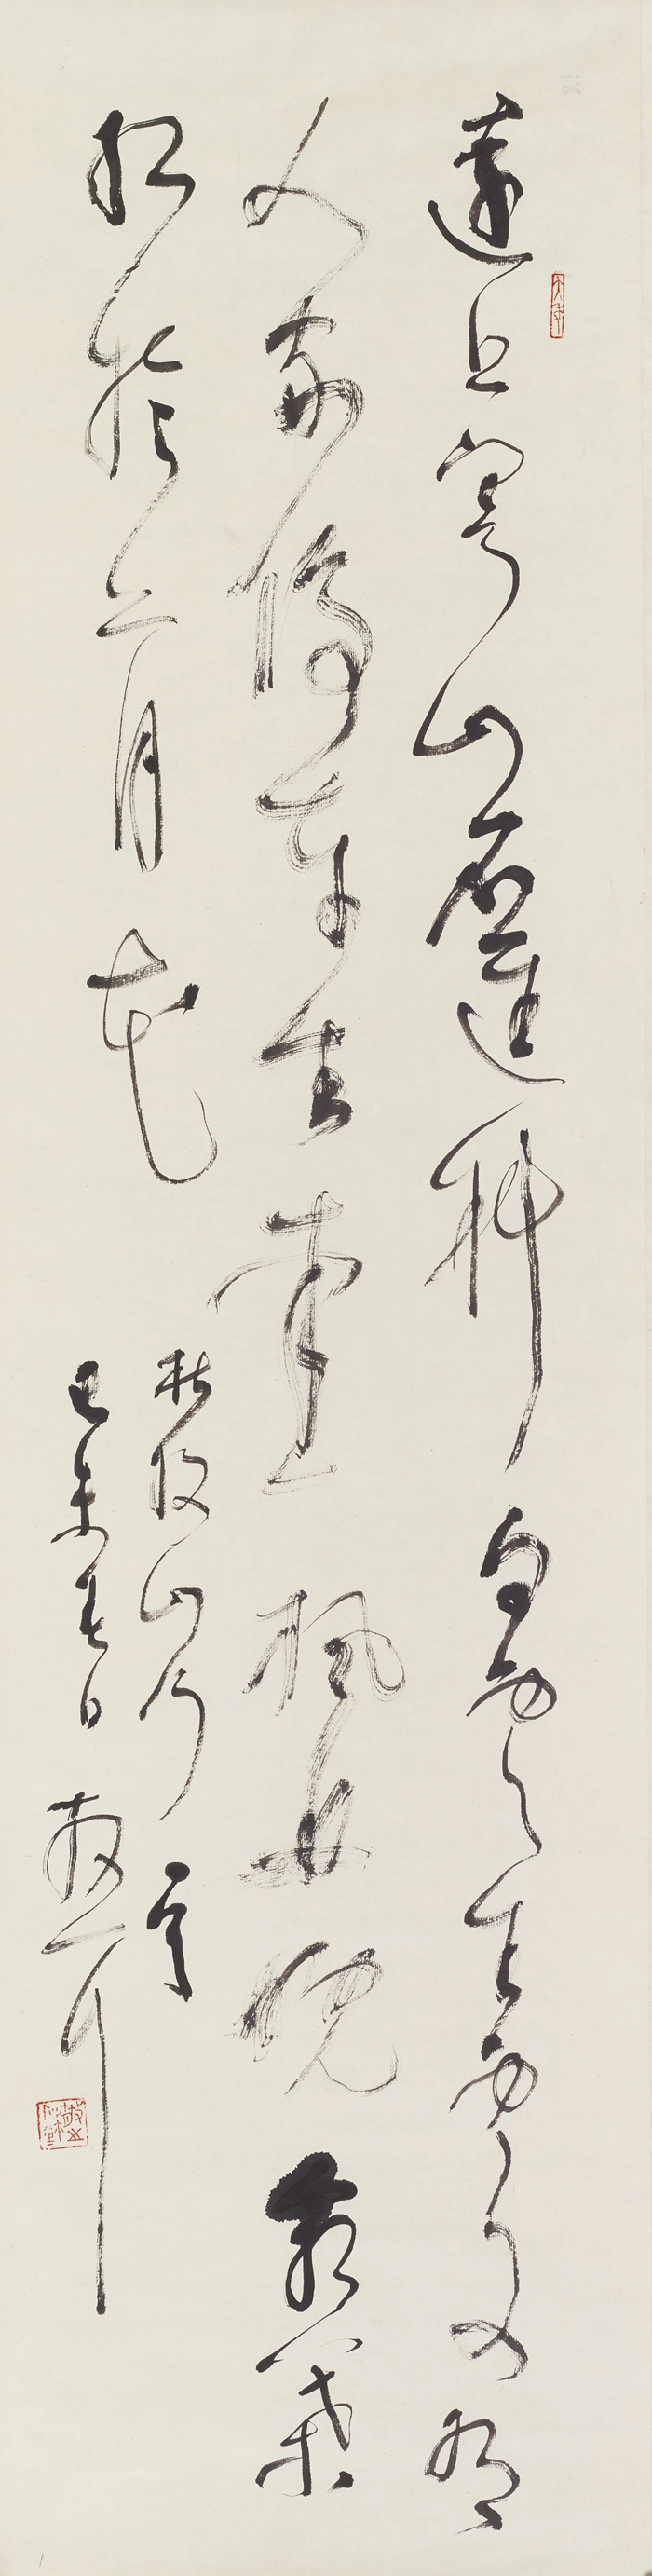 遠上寒山石逕斜白雲生處有
人家停車坐愛楓林晚霜葉
紅於二月花
杜牧山行
己未春日散耳